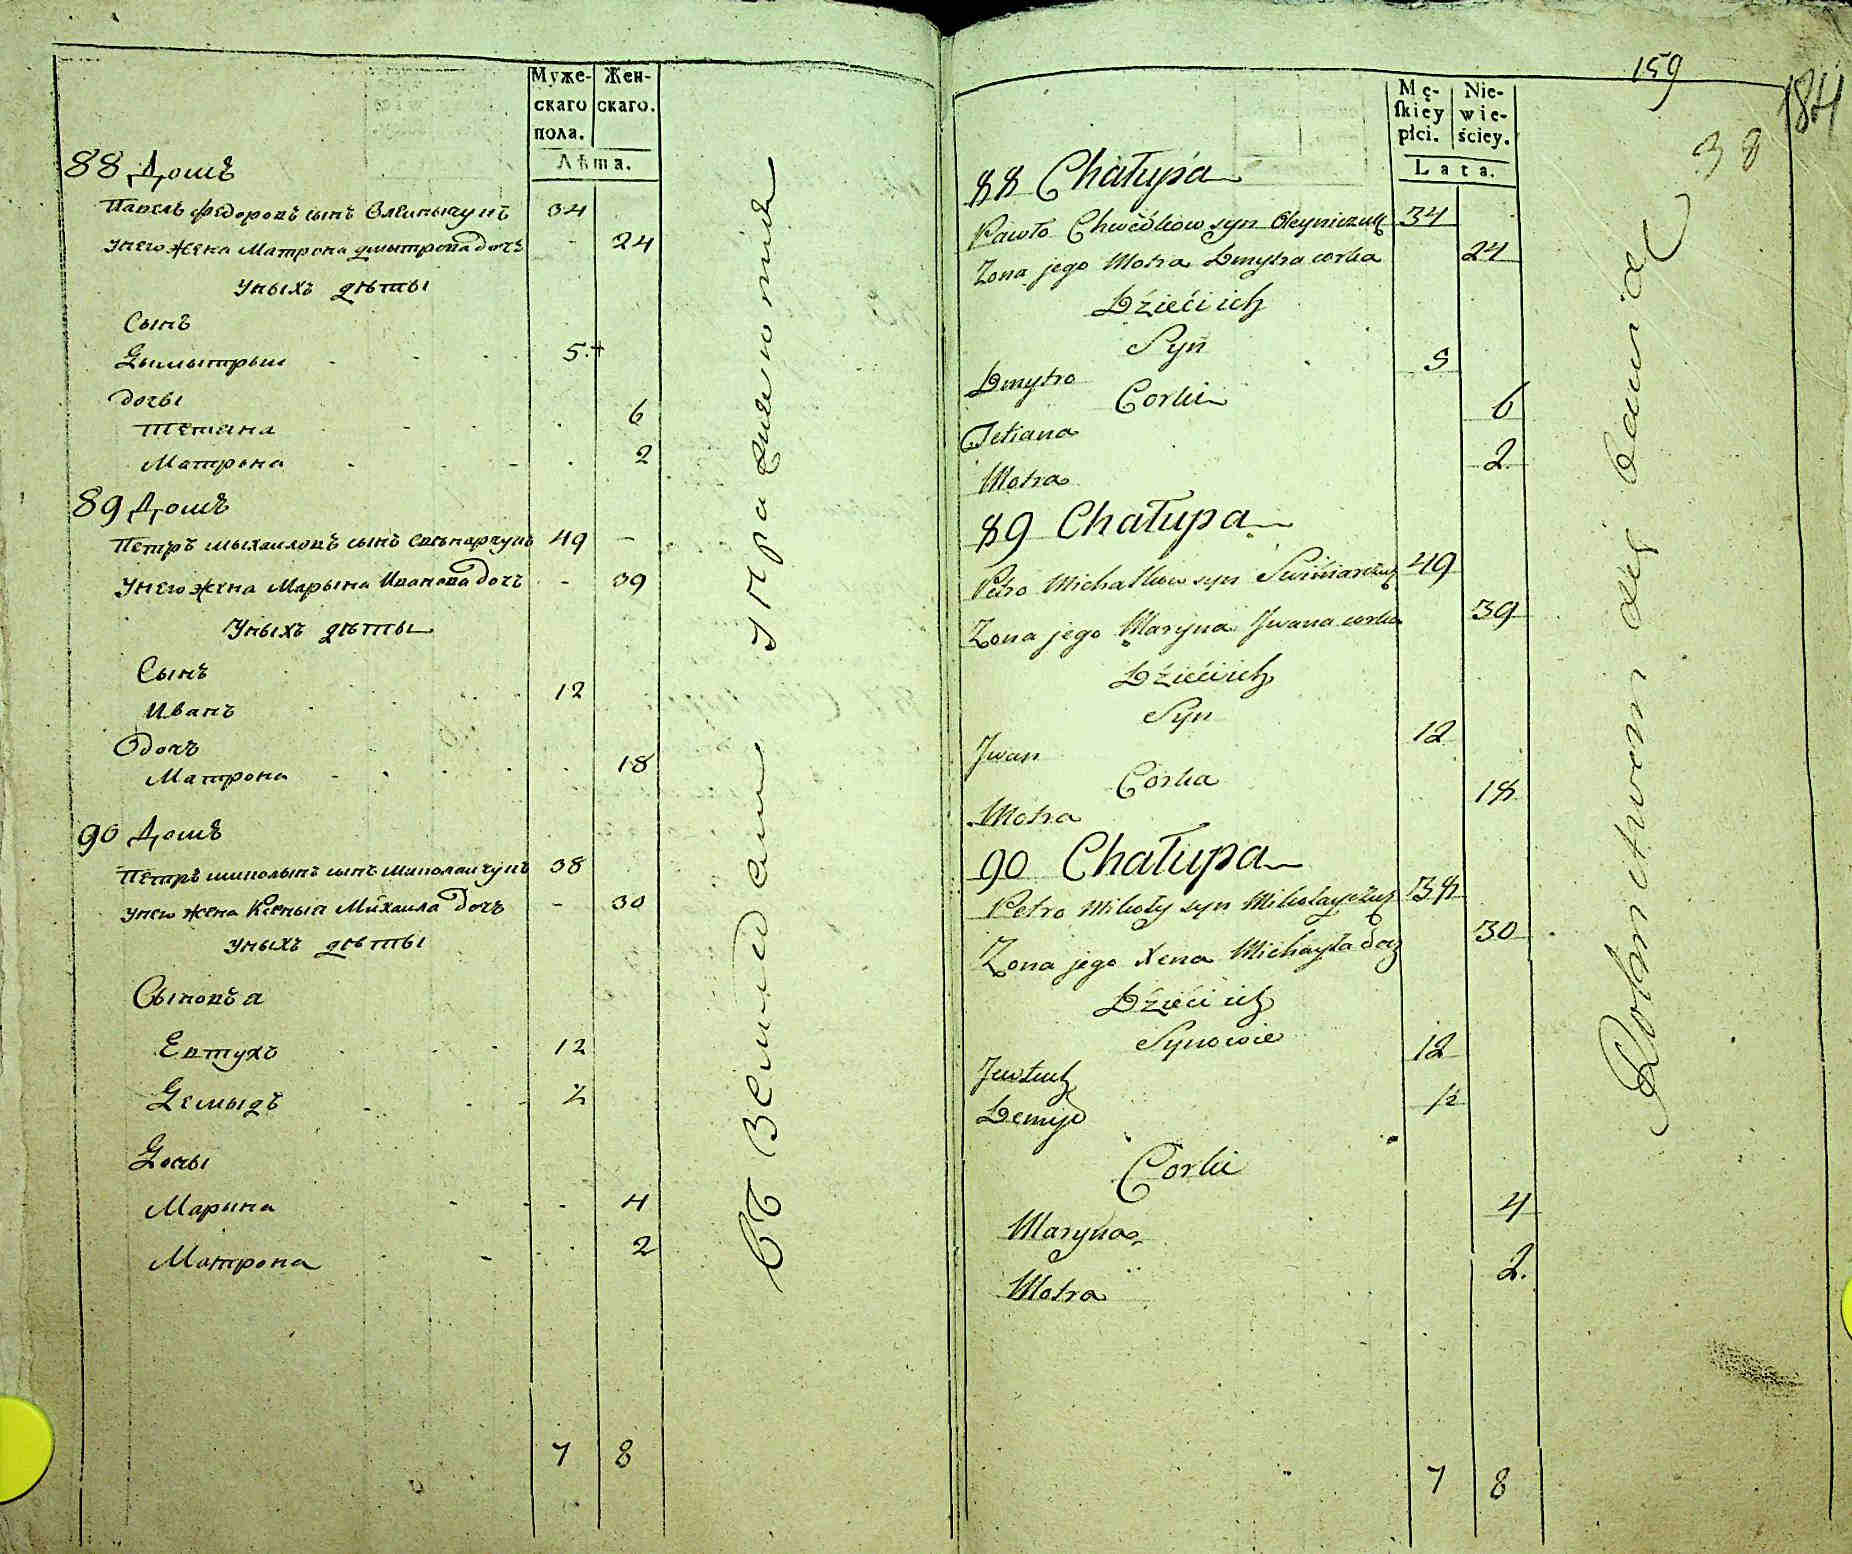 Муже-
скаго
пола.
Жен-
скаго.
Лѣта.
88 Домъ
Павелъ Федоровъ сынъ Олеиничукъ 34
Унего жена Матрона Дмытрова дочъ - 24
Уныхъ дѣты
Сынъ
Дымытрыи 5
дочы
Тетяна 6
Матрона 2
89 Домъ
Петръ Мыхаиловъ сынъ Свѣнарчукъ 49 -
Унего жена Марына Иванова дочъ - 39
Уныхъ дѣты
Сынъ
Иванъ 12
дочъ
Матрона 18
90 Домъ
Петръ Миколынъ сынъ Миколаичукъ 38
Унего жена Ксеныя Михаила дочъ - 30
Уныхъ дѣты
Сыновъя
Евтухъ 12
Демыдъ ½
Дочы
Марына - 4
Матрона 2
7 8
159
184
38
Mę-
ſkiey
płci.
Nie-
wie-
ściey.
Lata.
88 Chałupa
Pawło Chwedkow syn Oleyniczuk 34
Zona jego Motra Dmytra corka 24
Dzieci ich
Syn
Dmytro 5
Corki
Tetiana 6
Motra 2
89 Chałupa
Petro Michałkow syn Swiniarczuk 49
Zona jego Maryna Jwana corka 39
Dzieci ich
Syn
Jwan 12
Corka
Motra 18
90 Chałupa
Petro Mikoły syn Mikołayczuk 38
Zona jego Xena Michayła doч 30
Dzieci ich
Synowie
Jewtuch 12
Demyd ½
Corki
Maryna 4
Motra 2.
7 8